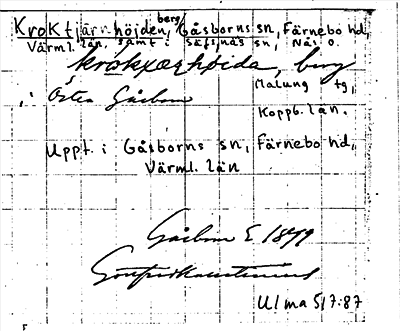 Kroktjärnhöjden, berg, Gåsborns sn, Färnebo hd,
Värml. län, samt i Säfsnäs sn, Näs o.
Malung tg,
i Östra Gåsborn
Koppb. län.
Uppt. i Gåsborns sn, Färnebo hd,
Värml. län
Gåsborn E 1879
U/ma 5/7:87